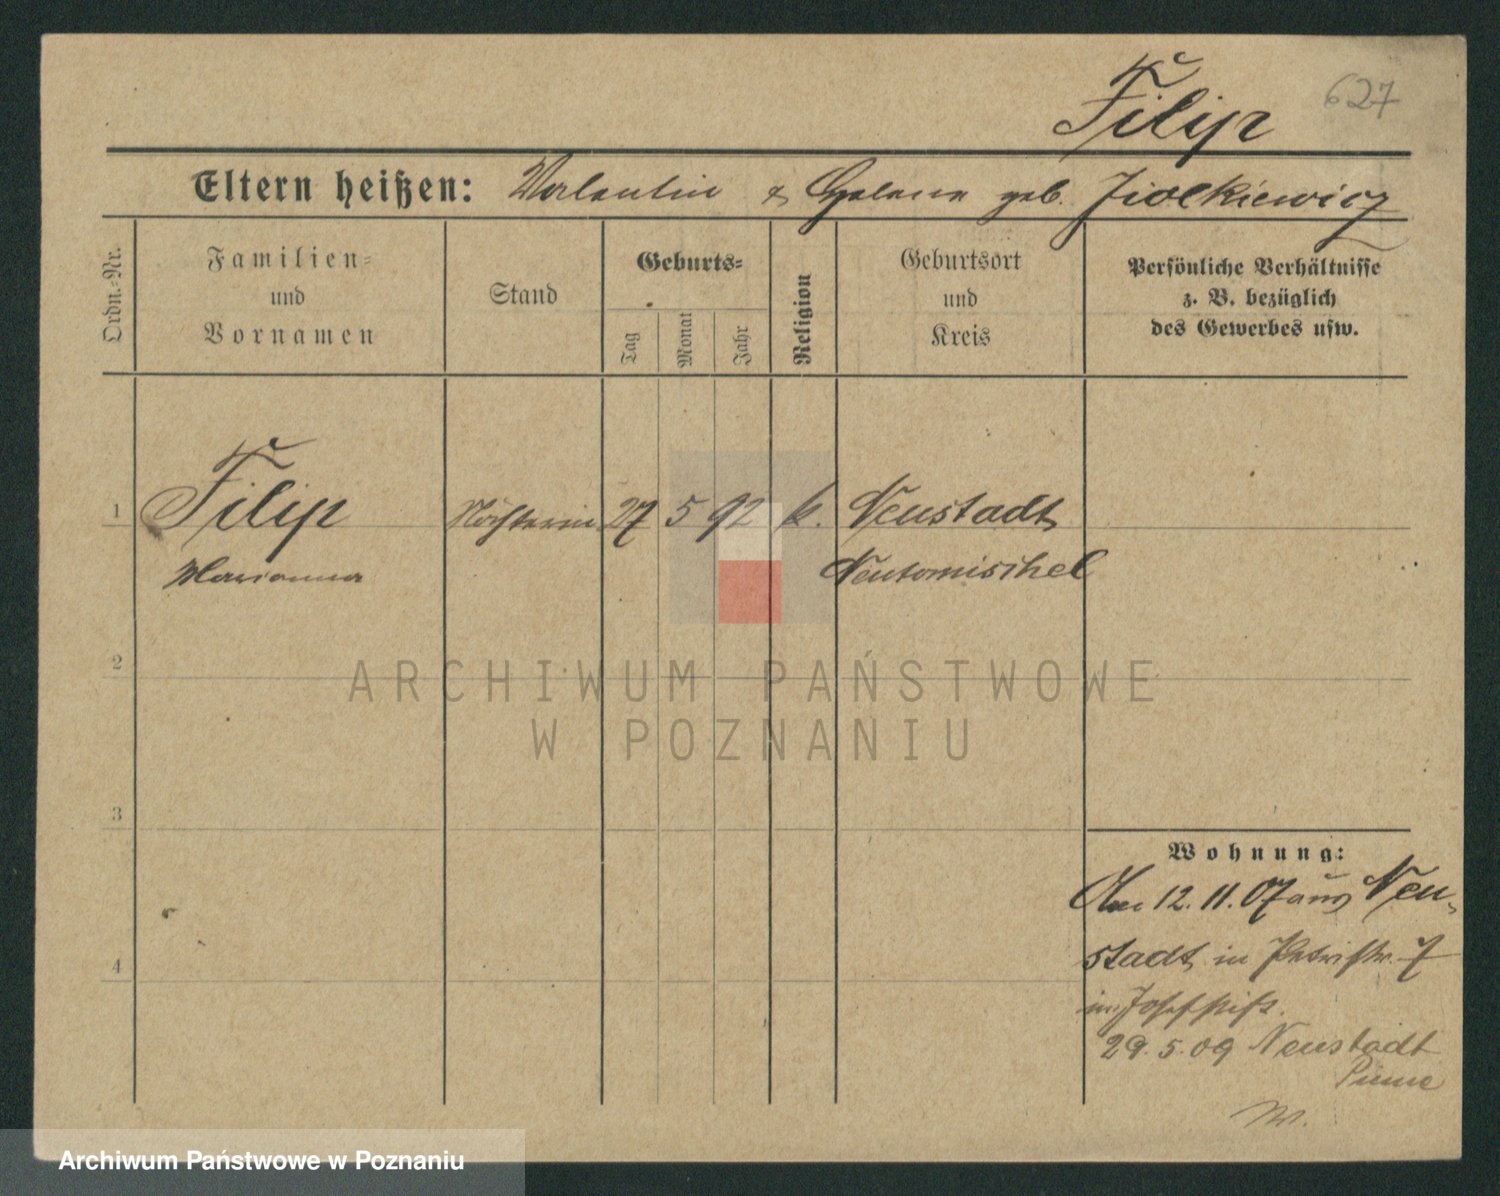 Filip 627
Eltern heißen: Valentin & Helena geb. Ziolkiewicz
Ordn.-Nr.
Familien-
und
Vornamen
Stand
Geburts-
Tag
Monat
Jahr
Religion
Geburtsort
und
Kreis
Persönliche Verhältnisse
z. B. bezüglich
des Gewerbes usw.
1 Filip 27 5 92 k. Neustadt
Marianna Neutomischel
2
3
4
Wohnung:
Am 12.11.07 aus Neu-
stadt in Petristr. 7
im Josefstift.
29.5.09 Neustadt
Pinne
ARCHIWUM PAŃSTWOWE
W POZNANIU
Archiwum Państwowe w Poznaniu